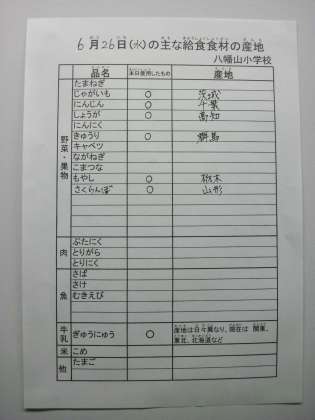 6月26日(水)の主な給食食材の産地
八幡山小学校
品名 本日使用したもの 産地
野菜・果物
たまねぎ
じゃがいも ○ 茨城
にんじん ○ 千葉
しょうが ○ 高知
にんにく
きゅうり ○ 群馬
キャベツ
ながねぎ
こまつな
もやし ○ 栃木
さくらんぼ ○ 山形
肉
ぶたにく
とりがら
とりにく
魚
さば
さけ
むきえび
牛乳 ぎゅうにゅう ○ 産地は日々異なり、現在は 関東、
東北、北海道など
米 こめ
他 たまご